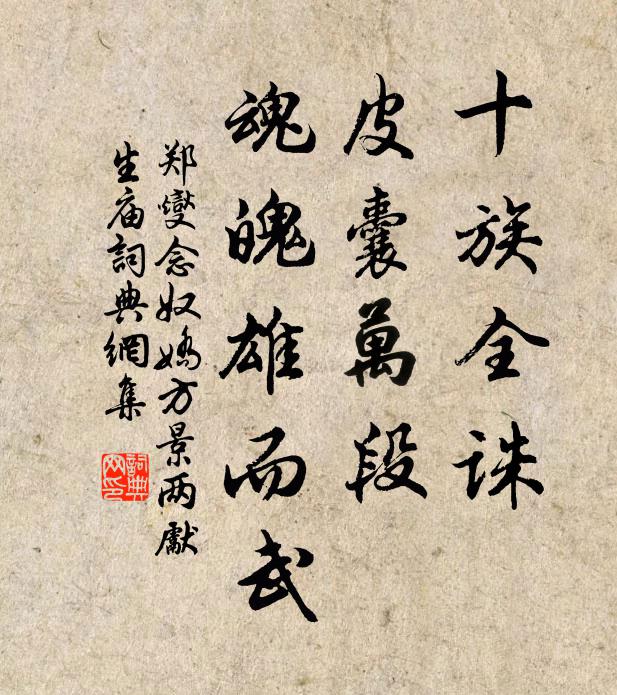 十族全誅
皮囊萬段
魂魄雄而武
郑燮念奴嬌方景两獻
生庙詞典網集
詞典
网印